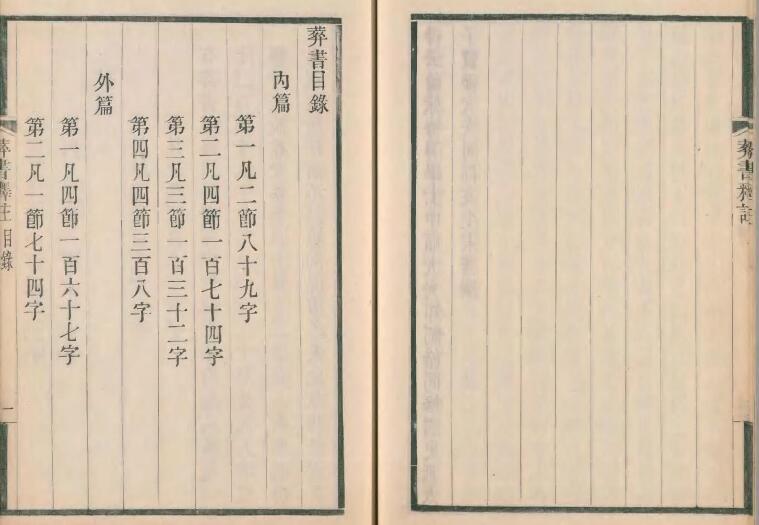 葬書釋註
葬書目錄
內篇
第一凡二節八十九字
第二凡四節一百七十四字
第三凡三節一百三十二字
第四凡四節三百八字
外篇
第一凡四節一百六十七字
第二凡一節七十四字
葬書釋註 目錄 一